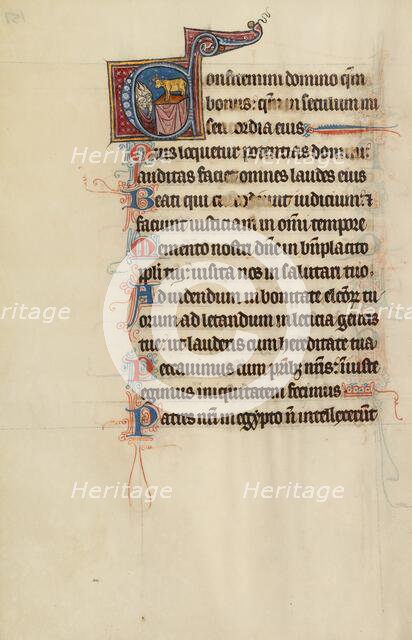 151
Confitemini domino qm̄
bonus: qm̄ in seculum mi
sericordia eius
Quis loquetur potentias domini:
auditas faciet omnes laudes eius
Beati qui custodiunt iudicium: &
faciunt iusticiam in omni tempore
Memento nostri dn̄e in bn̄placito
ppli tui: uisita nos in salutari tuo.
Ad uidendum in bonitate elecor̄ tu
orum ad letandum in leticia gentis
tue: ut lauderis cum hereditate tua
Peccauimus cum prīb; nr̄is: iniuste
egimus iniquitatem fecimus
Patres nr̄i in egypto n̄ intellexerūt
Heritage
Heritage
Heritage
Heritage
Heritage
Heritage
Heritage
Heritage
C